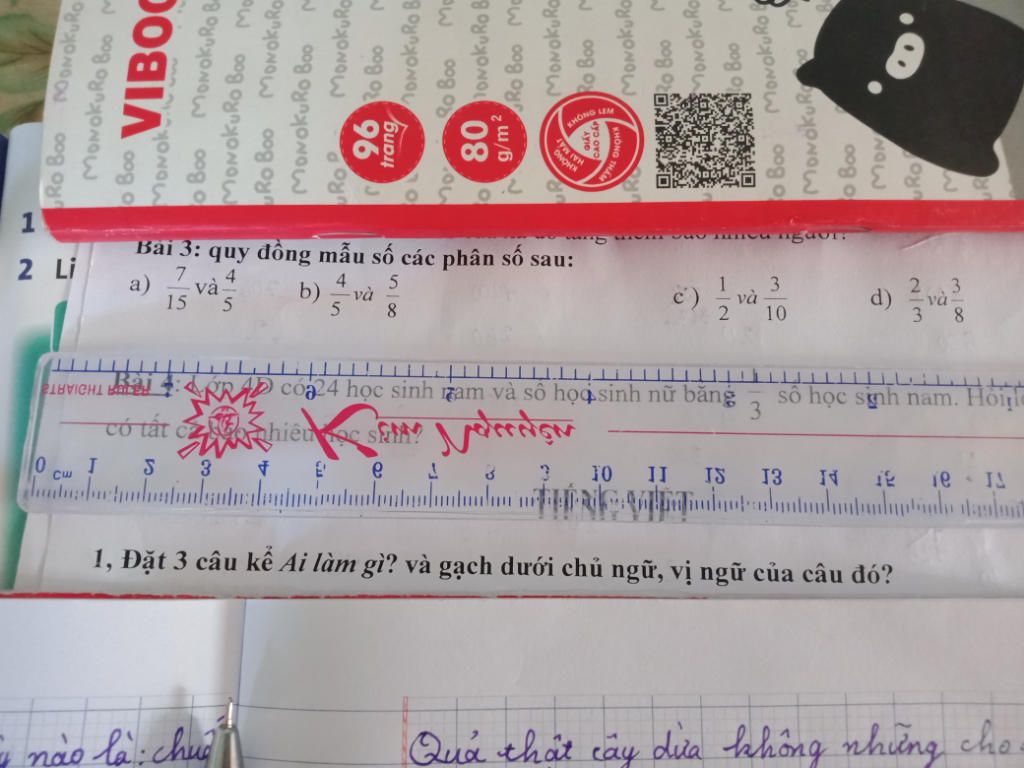 VIBOO
MonokuRo Boo
96 trang
80 g/m²
KHÔNG LEM
GIẤY CAO CẤP
KHÔNG THẤM
KHÔNG HAI MẶT
1
2 Li
Bài 3: quy đồng mẫu số các phân số sau:
a) 7/15 và 4/5 b) 4/5 và 5/8 c) 1/2 và 3/10 d) 2/3 và 3/8
Bài 4: Lớp 4D có 24 học sinh nam và số học sinh nữ bằng /3 số học sinh nam. Hỏi
có tất cả bao nhiêu học sinh?
STRAIGHT RULER
Kim Nguyên
0 cm 1 2 3 4 5 6 7 8 9 10 11 12 13 14 15 16 17
TIẾNG VIỆT
1, Đặt 3 câu kể Ai làm gì? và gạch dưới chủ ngữ, vị ngữ của câu đó?
nào là: chuố
Quả thật cây dừa không những cho